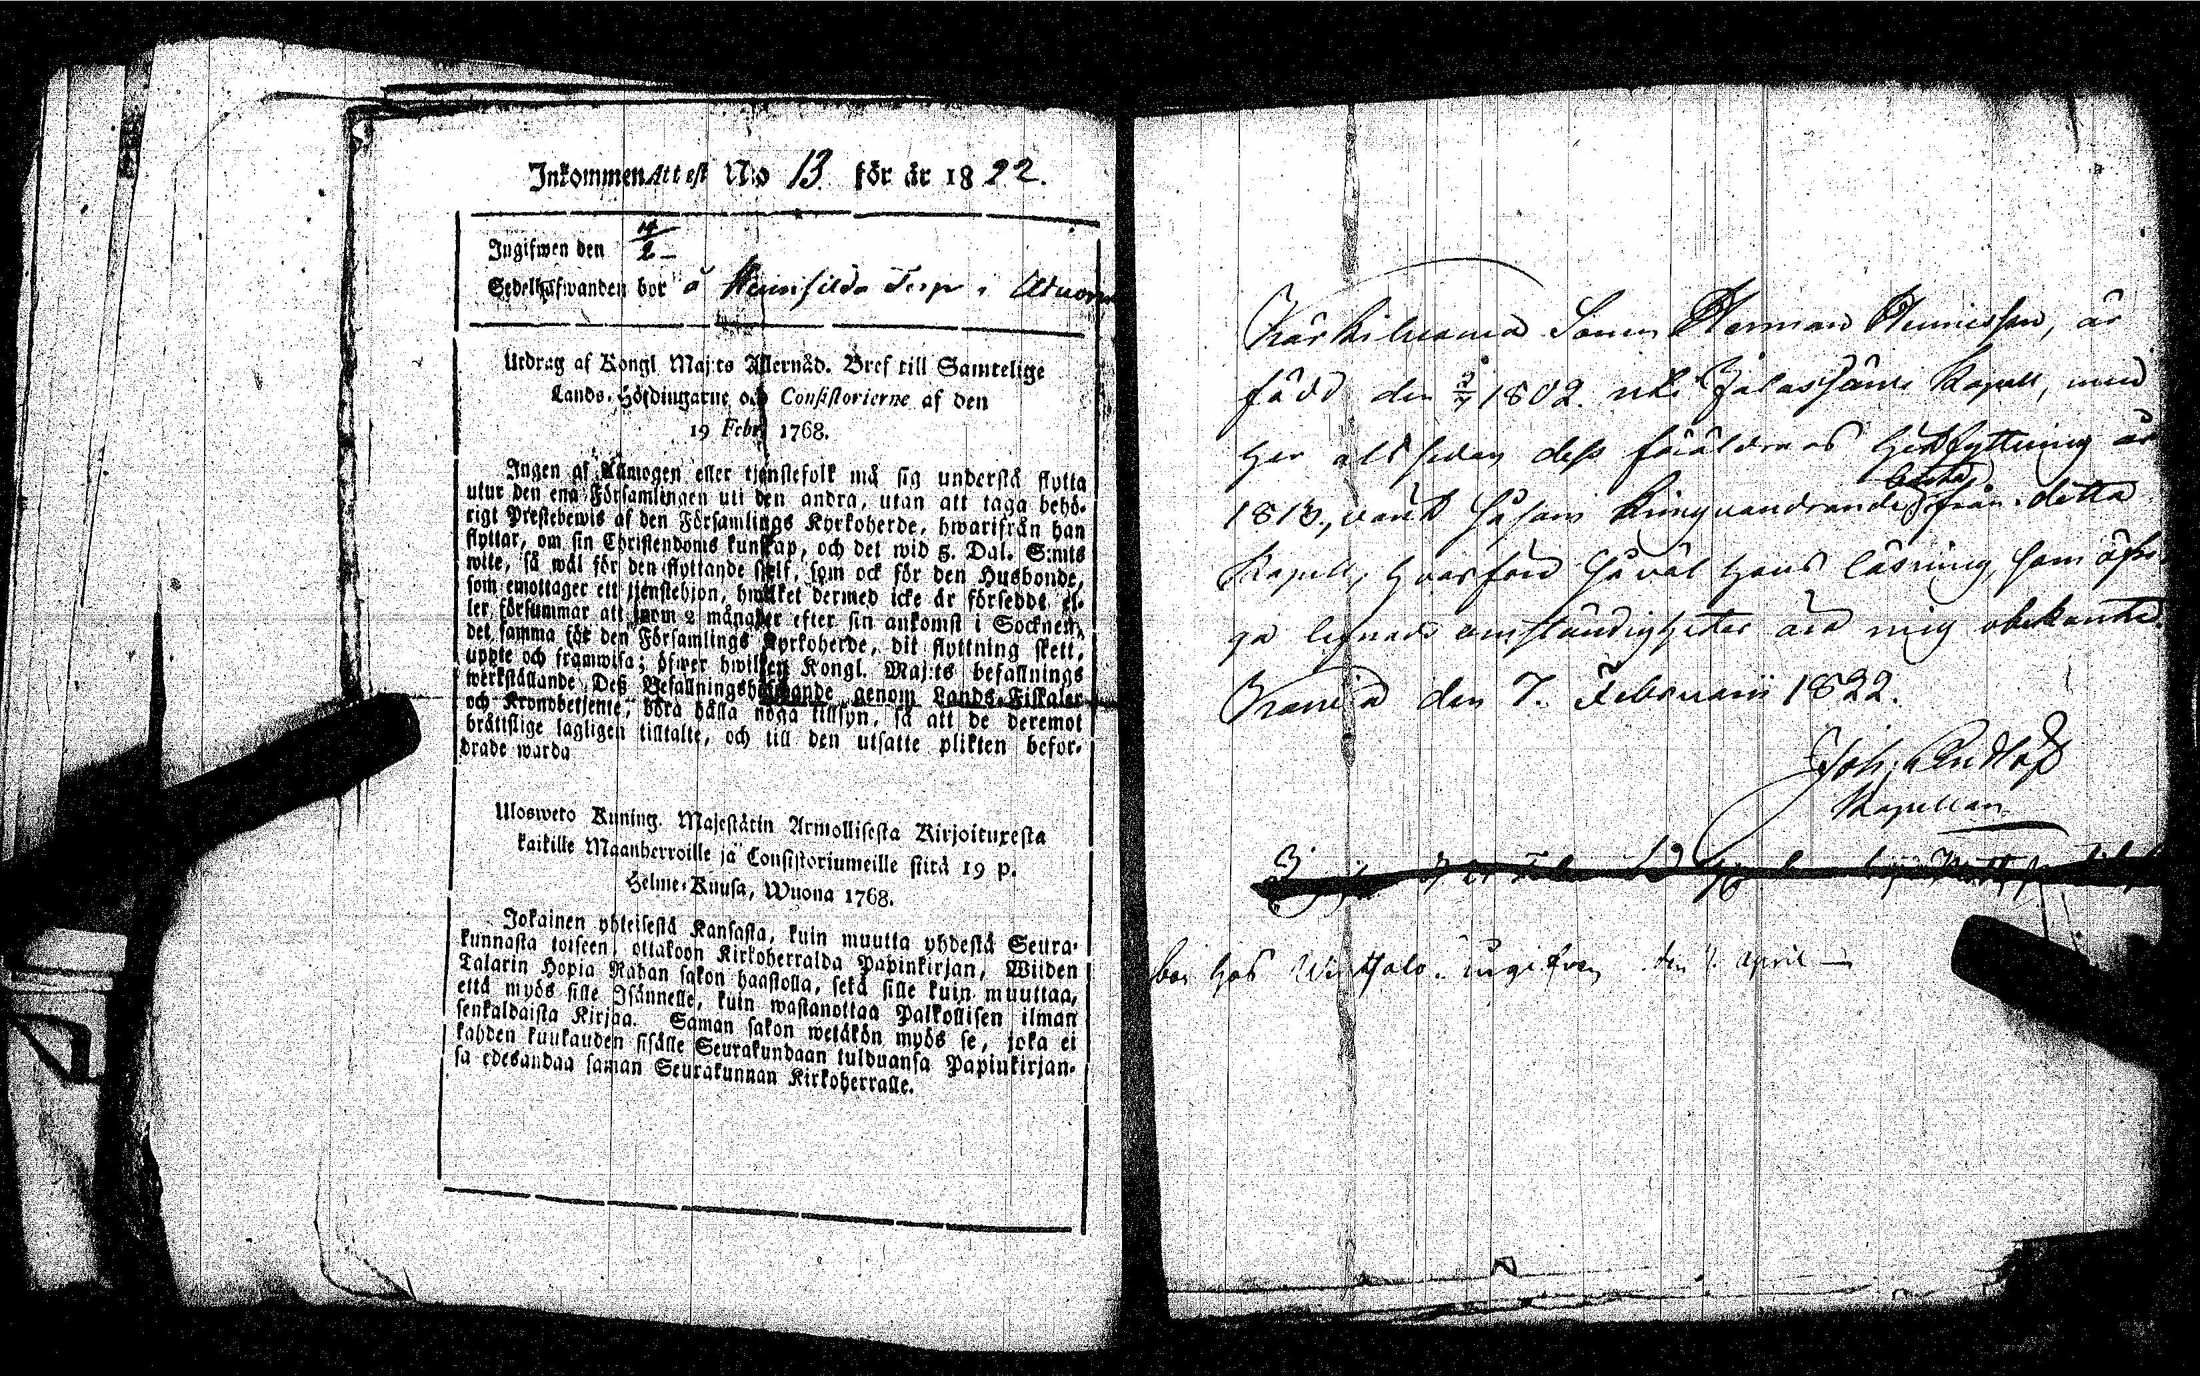 Inkommen Attest No 13 för år 1822.
Ingifwen den 14/2
Sedelhafwanden bor å Torp i
Utdrag af Kongl Maj:ts Allernåd. Bref till Samtelige
Lands-Höfdingarne och Consistorierne af den
19 Febr. 1768.
Ingen af Allmogen eller tjenstefolk må sig understå flytta
utur den ena Församlingen uti den andra, utan att taga behö-
rigt Prestebewis af den Församlings Kyrkoherde, hwarifrån han
flyttar, om sin Christendoms kunskap, och det wid 5. Dal. S:mts
wite, så wäl för den flyttande sjelf, som ock för den Husbonde,
som emottager ett tjenstehjon, hwilket dermed icke är försedt, el-
ler försummar att inom 2 månader efter sin ankomst i Socknen,
det samma för den Församlings Kyrkoherde, dit flyttning skett,
uppte och framwisa; öfwer hwilken Kongl. Maj:ts befallnings
werkställande Deß Befallningshafwande genom Lands-Fiskaler
och Kronobetjente, böra hålla noga tillsyn, så att de deremot
brättslige lagligen tilltalte, och till den utsatte plikten befor-
drade warda
Ulosweto Kuning. Majestätin Armollisesta Kirjoituxesta
kaikille Maanherroille ja Consistoriumeille siitä 19 p.
Helme-Kuusa, Wuona 1768.
Jokainen yhteisestä Kansasta, kuin muutta yhdestä Seura-
kunnasta toiseen, ottakoon Kirkoherralda Papinkirjan, Wiiden
Talarin Hopia Rahan sakon haastolla, sekä sille kuin muuttaa,
että myös sille Isännelle, kuin wastanottaa Palkollisen ilman
senkaldaista Kirjaa. Saman sakon wetäkön myös se, joka ei
kahden kuukauden sisälle Seurakundaan tulduansa Papinkirjan-
sa edesandaa saman Seurakunnan Kirkoherralle.
Sonen Herman, är
född den 1802. uti Jalasjärvi Kapell, men
har alt sedan dess föräldrars hitflyttning år
1813, varit såsom kringvandrande borta från detta
Kapell, hvarföre så väl hans läsning, som öfri-
ga lefnads omständigheter äro mig obekante.
den 7. Februarii 1822.
Joh.
Kapellan
bor hos ingifven den 1. April